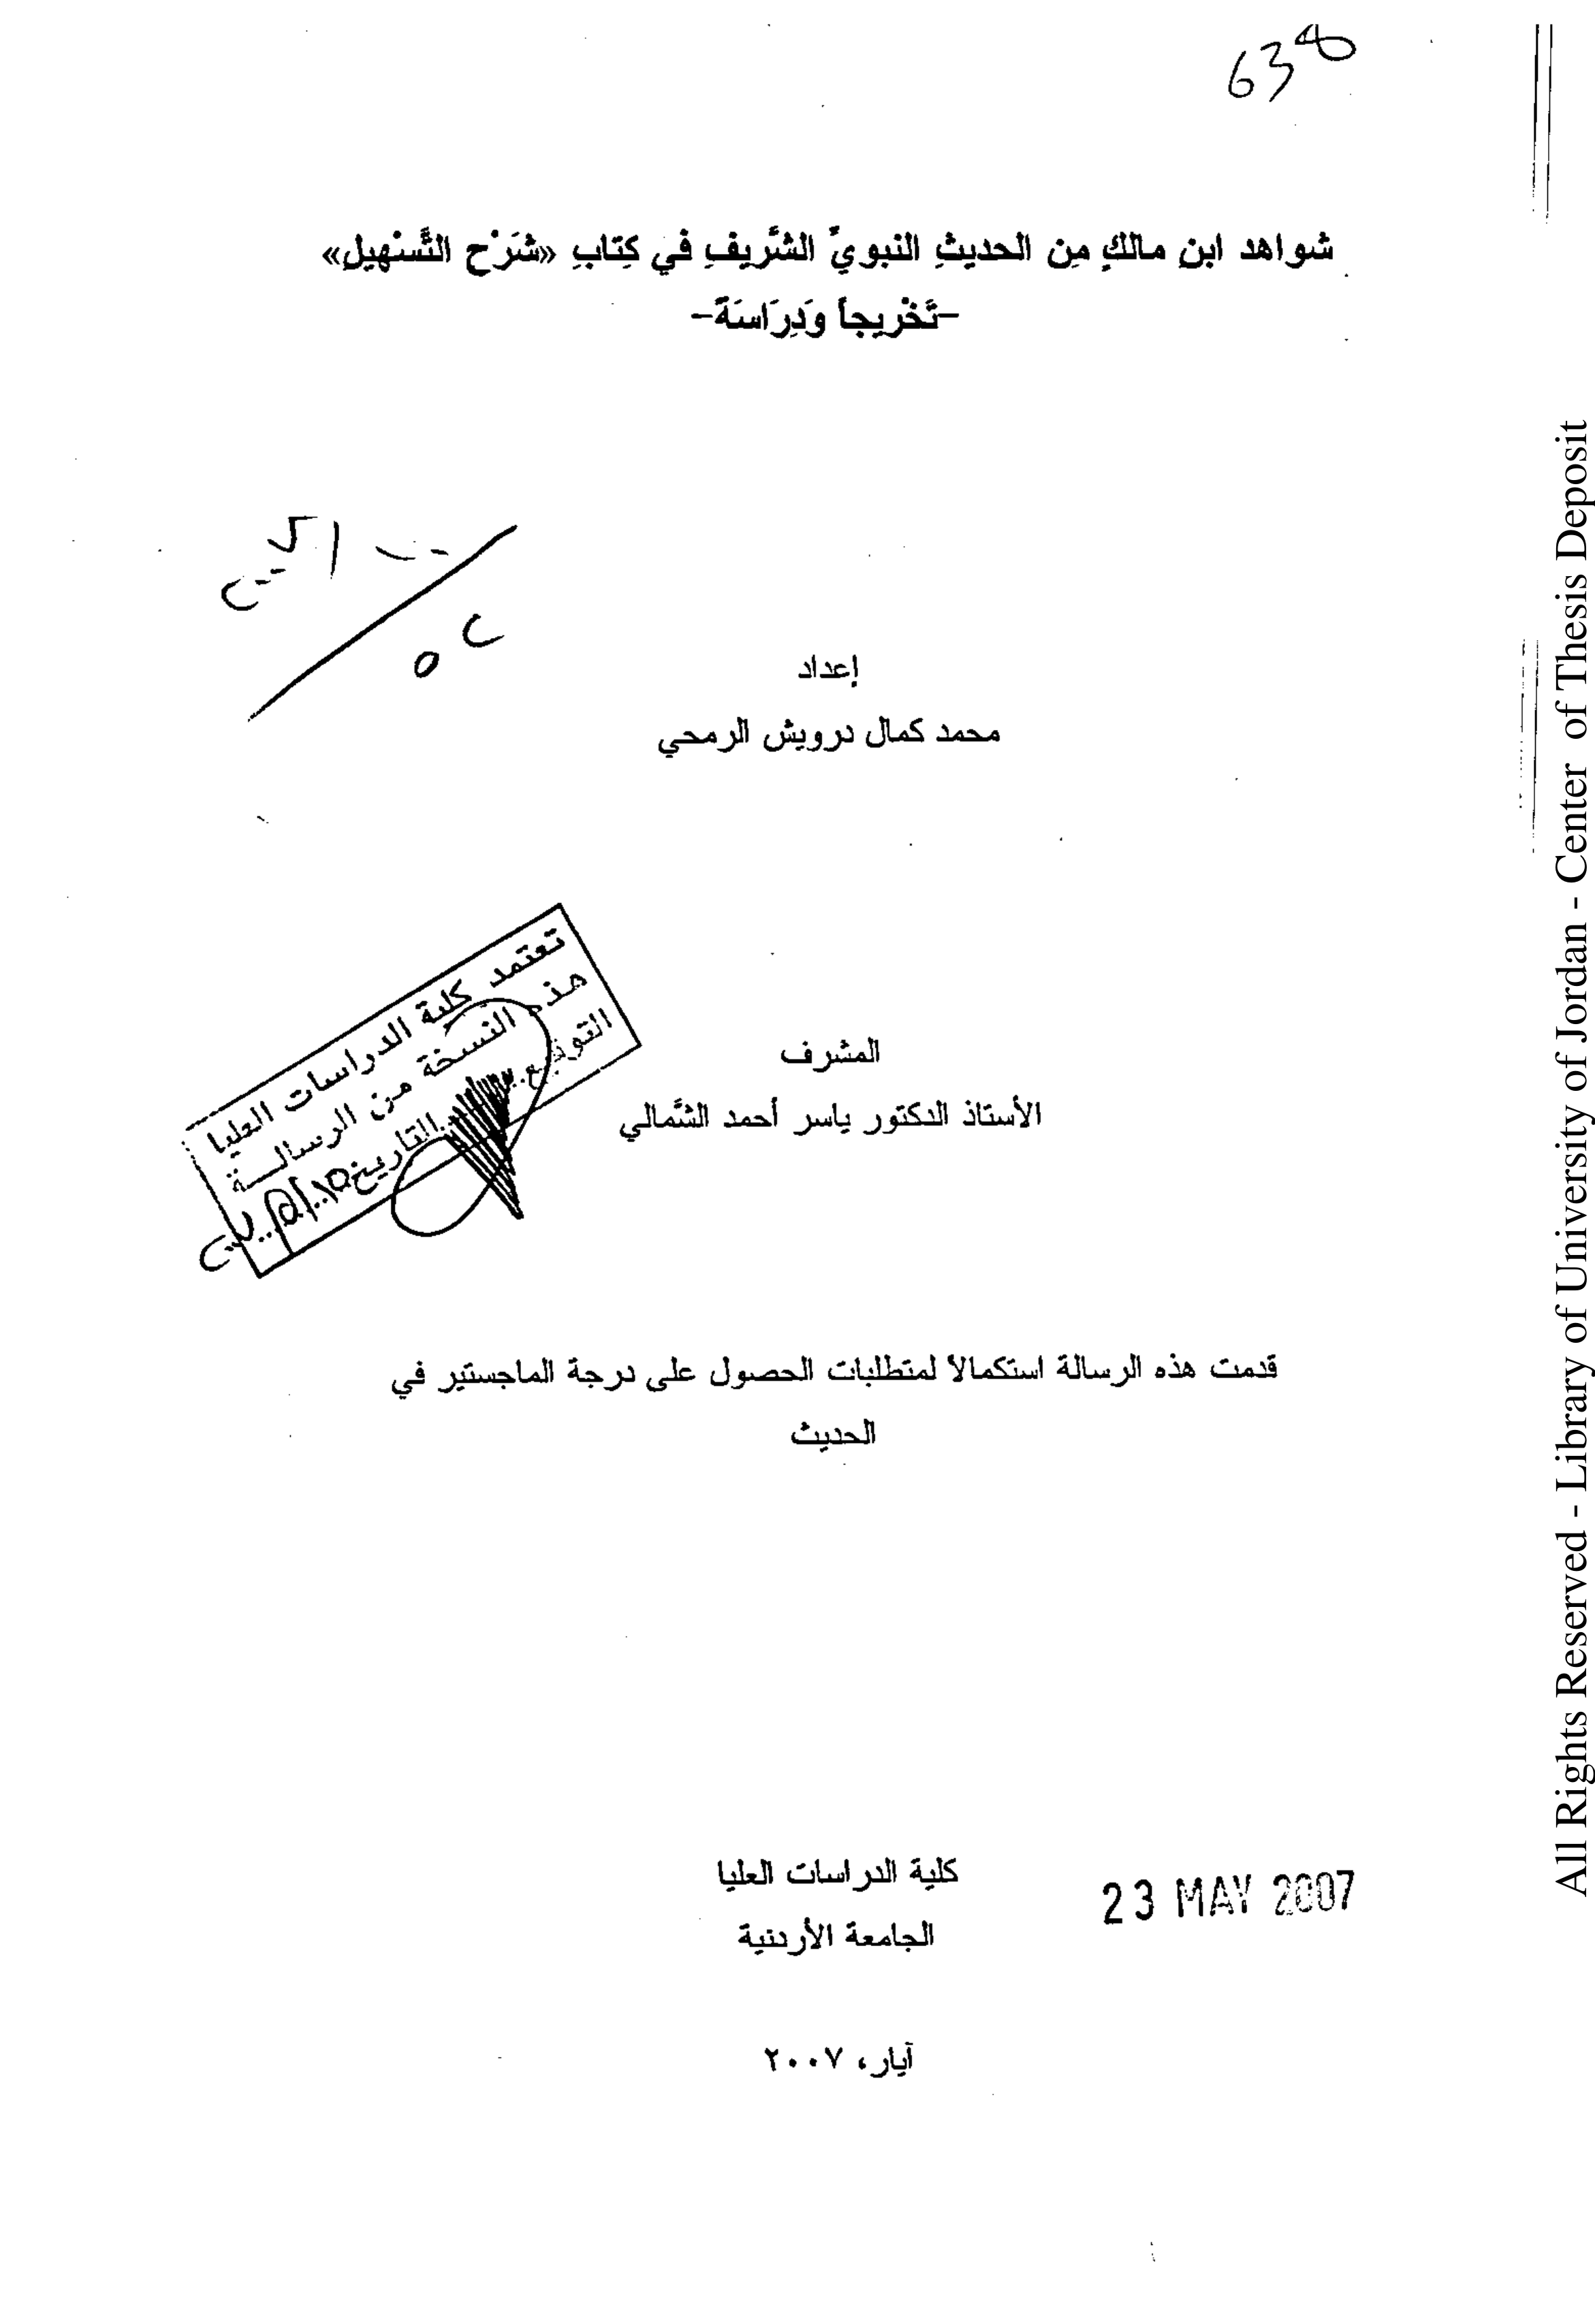 شواهد ابنِ مالكٍ مِن الحديثِ النبويِّ الشَّريفِ في كِتابِ «شَرْح التَّسْهيلِ»
-تَخْريجاً وَدِرَاسَةً-
إعداد
محمد كمال درويش الرمحي
تعتمد كلية الدراسات العليا
هذه النسخة من الرسالــة
التوقيع
التاريخ
المشرف
الأستاذ الدكتور ياسر أحمد الشَّمالي
قدمت هذه الرسالة استكمالاً لمتطلبات الحصول على درجة الماجستير في
الحديث
كلية الدراسات العليا
الجامعة الأردنية
23 MAY 2007
آيار، ٢٠٠٧
All Rights Reserved - Library of University of Jordan - Center of Thesis Deposit